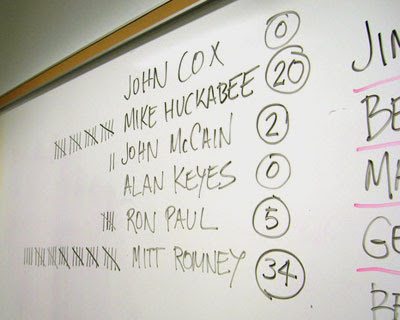 JOHN COX 0
MIKE HUCKABEE 20
JOHN McCAIN 2
ALAN KEYES 0
RON PAUL 5
MITT ROMNEY 34
JIM
BE
MA
GE
BE